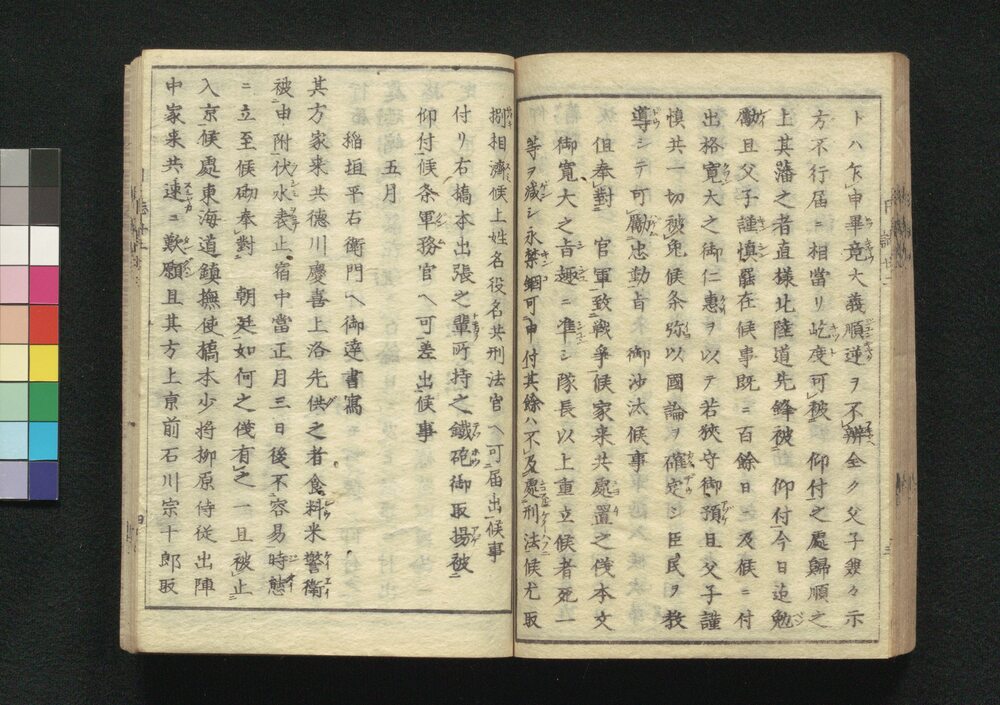 トハ乍申畢竟大義順逆ヲ不辨全ク父子錂々示
方不行届ニ相當リ屹度可被 仰付之處歸順之
上其藩之者直様北陸道先鋒被 仰付今日迠勉
勵且父子謹慎罷在候事既ニ百餘日ニ及候ニ付
出格寛大之御仁恵ヲ以テ若狹守御預且父子謹
慎共一切被免候条弥以國論ヲ確定シ臣民ヲ教
導シテ可勵忠勤旨 御沙汰候事
但奉對 官軍致戰爭候家来共處置之儀本文
御寛大之旨趣ニ準シ隊長以上重立候者死一
等ヲ減シ永禁錮可申付其餘ハ不及處刑法候尤取
捌相濟候上姓名役名共刑法官ヘ可届出候事
付リ右橋本出張之輩所持之鐵砲御取揚被
仰付候条軍務官ヘ可差出候事
五月
稲垣平右衛門ヘ御達書寫
其方家来共徳川慶喜上洛先供之者食料米警衛
被申附伏水表止宿中當正月三日後不容易時態
ニ立至候砌奉對 朝廷如何之儀有之一且被止
入京候處東海道鎮撫使橋本少将柳原侍従出陣
中家来共速ニ歎願且其方上京前石川宗十郎取